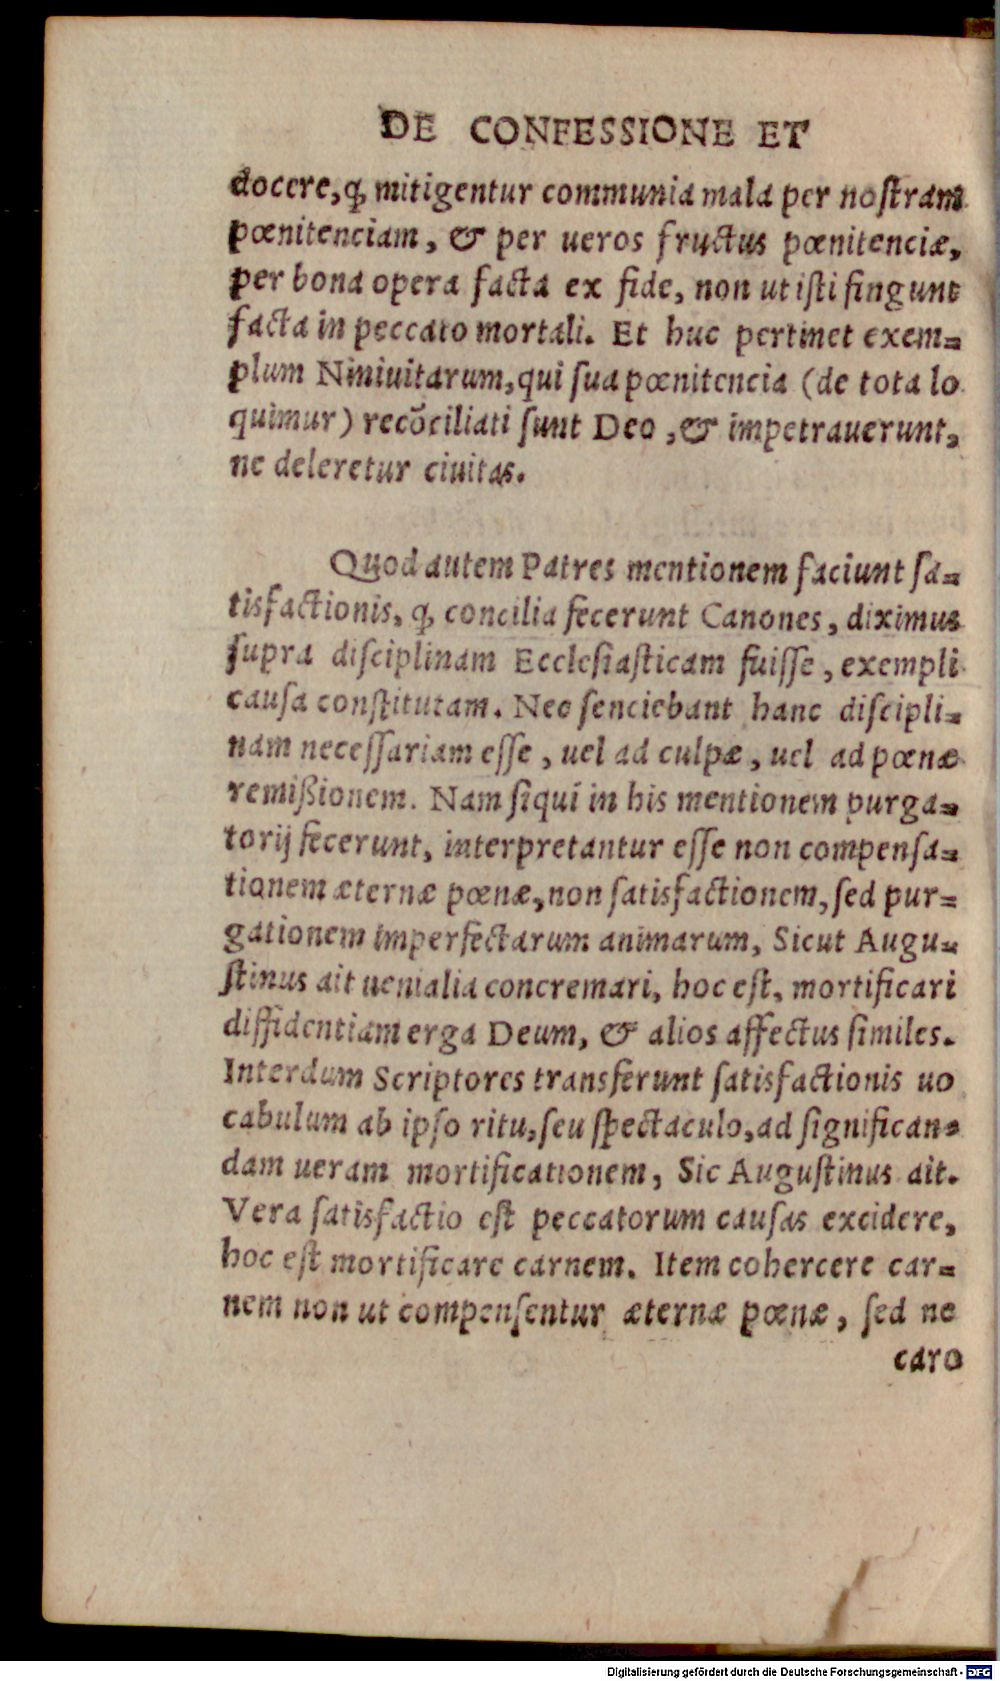 DE CONFESSIONE ET
docere, ꝙ mitigentur communia mala per noſtram
pœnitenciam, & per ueros fructus pœnitenciæ,
per bona opera facta ex fide, non ut iſti fingunt
facta in peccato mortali. Et huc pertinet exem=
plum Niniuitarum, qui ſua pœnitencia (de tota lo
quimur) recõciliati ſunt Deo, & impetrauerunt,
ne deleretur ciuitas.
Quod autem Patres mentionem faciunt ſa=
tisfactionis, ꝙ concilia fecerunt Canones, diximus
ſupra diſciplinam Eccleſiaſticam fuiſſe, exempli
cauſa conſtitutam. Nec ſenciebant hanc diſcipli=
nam neceſſariam eſſe, uel ad culpæ, uel ad pœnæ
remißionem. Nam ſiqui in his mentionem purga=
torij fecerunt, interpretantur eſſe non compenſa=
tionem æternæ pœnæ, non ſatisfactionem, ſed pur=
gationem imperfectarum animarum, Sicut Augu=
ſtinus ait uenialia concremari, hoc eſt, mortificari
diffidentiam erga Deum, & alios affectus ſimiles.
Interdum Scriptores transferunt ſatisfactionis uo
cabulum ab ipſo ritu, ſeu ſpectaculo, ad ſignifican=
dam ueram mortificationem, Sic Auguſtinus ait.
Vera ſatisfactio eſt peccatorum cauſas excidere,
hoc eſt mortificare carnem. Item cohercere car=
nem non ut compenſentur æternæ pœnæ, ſed ne
caro
Digitalisierung gefördert durch die Deutsche Forschungsgemeinschaft - DFG